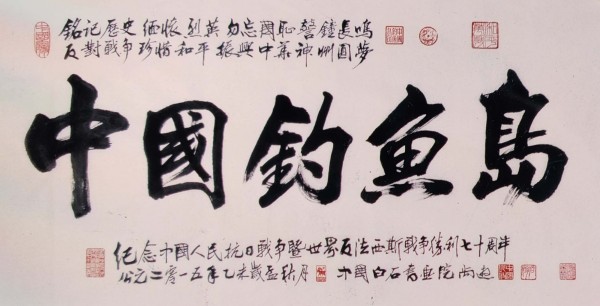 銘记歷史 缅懷烈英 勿忘國恥 警鐘長鳴
反對戰爭 珍惜和平 振興中華 神州圆夢
中國釣魚島
纪念中國人民抗日戰争暨世界反法西斯戰争勝利七十周年
公元二零一五年乙未歲孟秋月 中國白石書画院